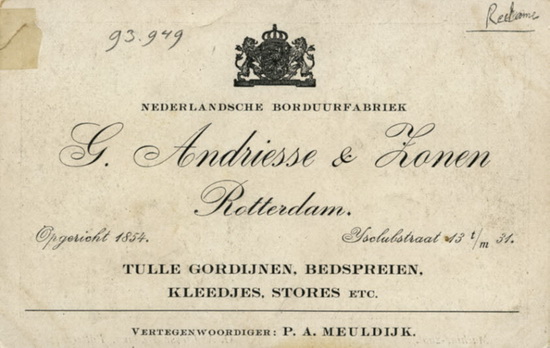 93.949
Reclame
NEDERLANDSCHE BORDUURFABRIEK
G. Andriesse & Zonen
Rotterdam.
Opgericht 1854. Ysclubstraat 13 t/m 31.
TULLE GORDIJNEN, BEDSPREIEN,
KLEEDJES, STORES ETC.
VERTEGENWOORDIGER: P. A. MEULDIJK.